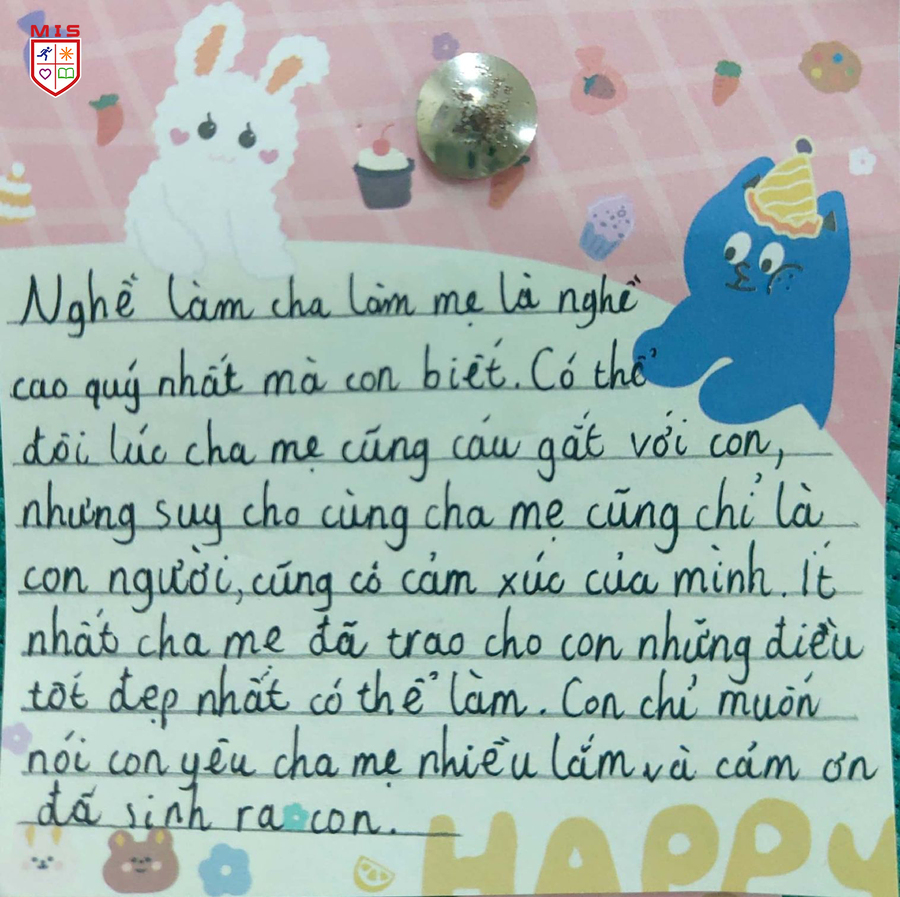 MIS
Nghề làm cha làm mẹ là nghề
cao quý nhất mà con biết. Có thể
đôi lúc cha mẹ cũng cáu gắt với con,
nhưng suy cho cùng cha mẹ cũng chỉ là
con người, cũng có cảm xúc của mình. Ít
nhất cha mẹ đã trao cho con những điều
tốt đẹp nhất có thể làm. Con chỉ muốn
nói con yêu cha mẹ nhiều lắm và cảm ơn
đã sinh ra con.
HAPPY